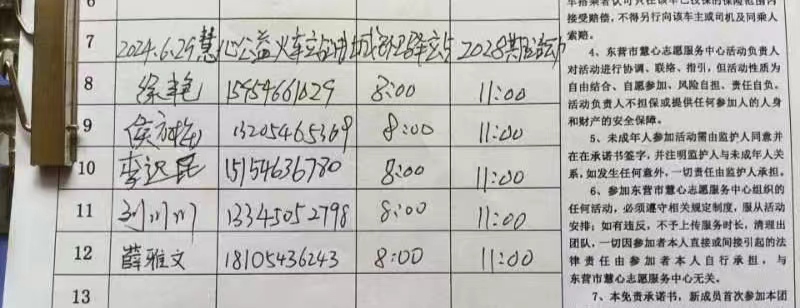 7 2024.6.29慧心公益火车站助城环驿站2028期活动
8 徐艳 15954661029 8:00 11:00
9 13205465369 8:00 11:00
10 李迟昆 15154636780 8:00 11:00
11 刘川川 13345052798 8:00 11:00
12 薛雅文 18105436243 8:00 11:00
13
接受赔偿，不得另行向该车主或司机及同乘人
索赔。
4、东营市慧心志愿服务中心活动负责人
对活动进行协调、联络、指引，但活动性质为
自由结合、自愿参加、风险自担、责任自负。
活动负责人不担保或提供任何参加人的人身
和财产的安全保障。
5、未成年人参加活动需由监护人同意并
在在承诺书签字，并注明监护人与未成年人关
系，如发生任何意外，一切责任由监护人承担。
6、参加东营市慧心志愿服务中心组织的
任何活动，必须遵守相关规定制度，服从活动
安排；如有违反，不予上传服务时长，清理出
团队，一切因参加者本人直接或间接引起的法
律责任由参加者本人自行承担，与
东营市慧心志愿服务中心无关。
7、本免责承诺书，新成员首次参加本团